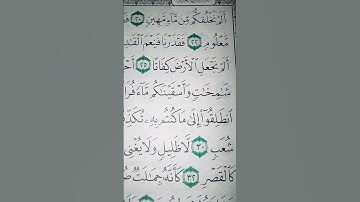 أَلَمْ نَخْلُقكُّم مِّن مَّآءٍ مَّهِينٍ ٢٠
مَّعْلُومٍ ٢٢ فَقَدَرْنَا فَنِعْمَ
أَلَمْ نَجْعَلِ ٱلْأَرْضَ كِفَاتًا ٢٥
شَٰمِخَٰتٍ وَأَسْقَيْنَٰكُم مَّآءً
ٱنطَلِقُوٓا۟ إِلَىٰ مَا كُنتُم بِهِۦ
شُعَبٍ ٣٠ لَّا ظَلِيلٍ وَلَا يُغْنِى
كَٱلْقَصْرِ ٣٢ كَأَنَّهُۥ جِمَٰلَتٌ